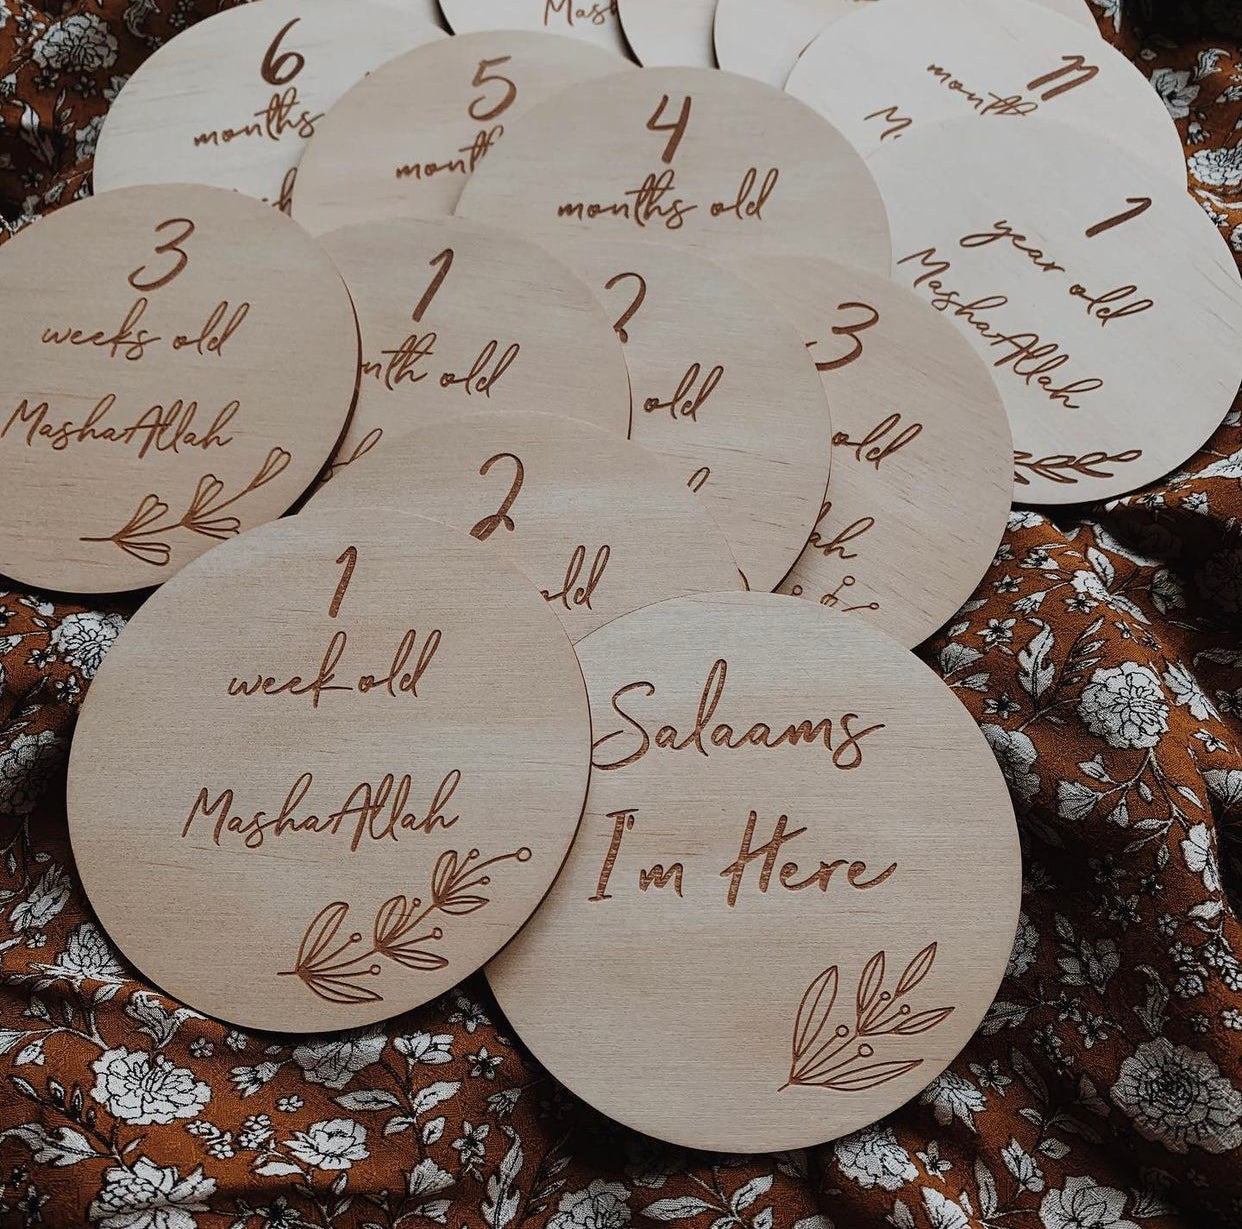 Mash
6
months
5
month
4
months old
11
month
M
1
year old
MashaAllah
3
weeks old
MashaAllah
1
nth old
2
old
3
old
ah
2
old
1
week old
MashaAllah
Salaams
I'm Here